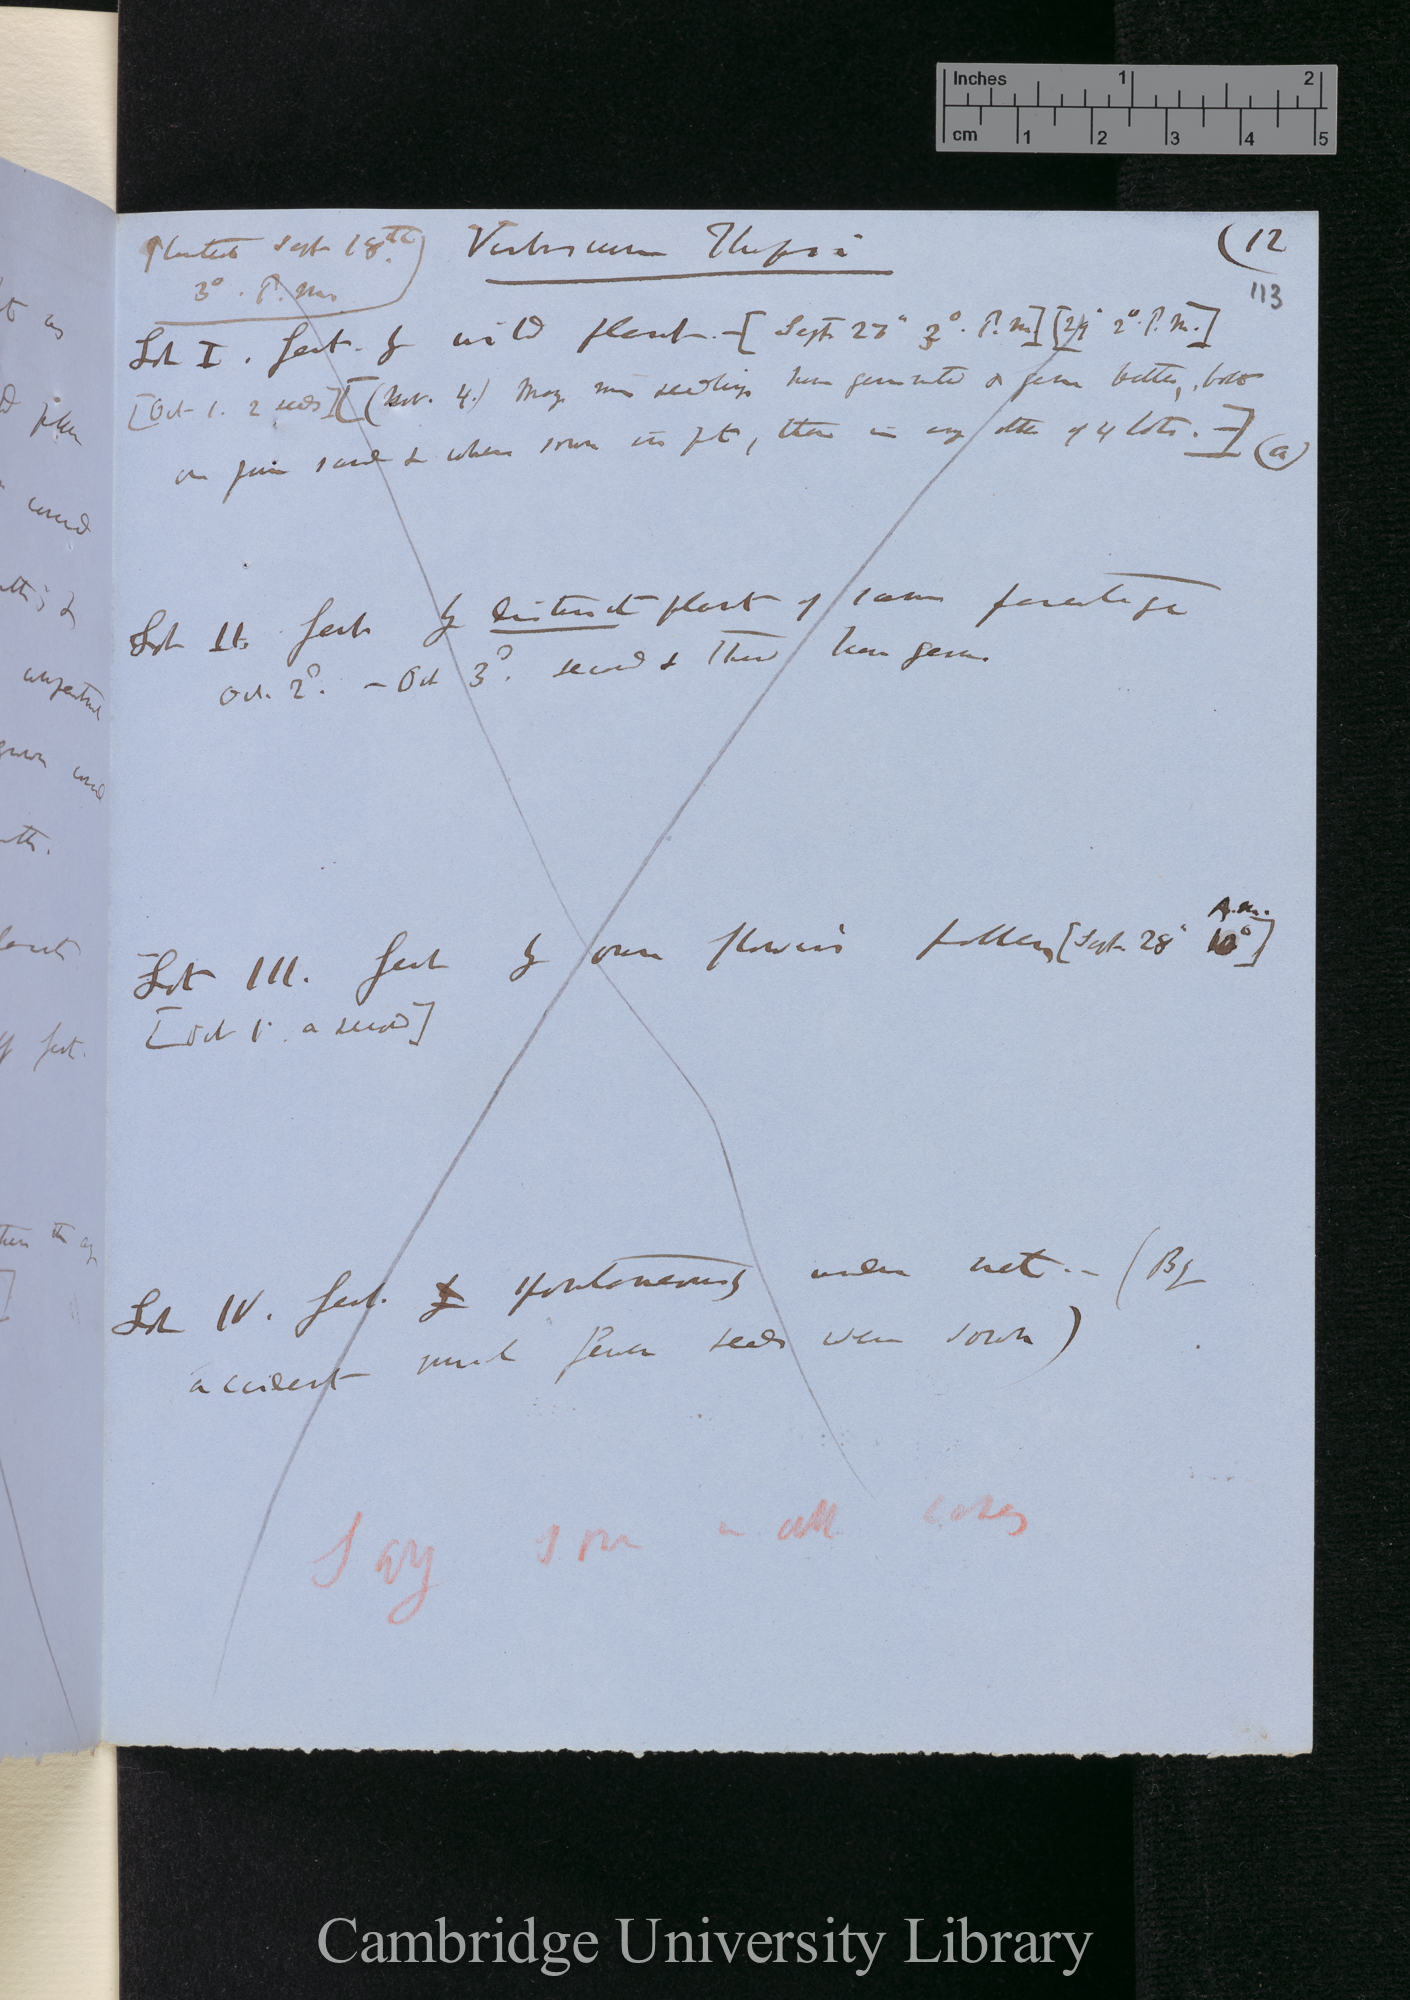 Inches 1 2
cm 1 2 3 4 5
(12
113
Planted Sept 18th
3°. P.m.
Verbascum Thapsus
Lot I. fert. by wild plant.—[Sept 27° 3°. P.m] [29° 2°. P.M.]
[Oct 1. 2 seeds] [(Nov. 4.) Many more seedlings have germinated & germ better, both
on pure sand & when sown in pot, than in any other of 4 lots.—] (a)
Lot II. fert by distinct plant of same parentage
Oct. 2°. — Oct 3°. second & third have germ.
Lot III. fert by own flower's pollen [Sept. 28° A.m. 10°]
[Oct 1. a second]
Lot IV. fert. spontaneously under net.— (By
accident much fewer seeds were sown)
Say in all cases
as
pollen
could
&
grown
fert.
than the
Cambridge University Library